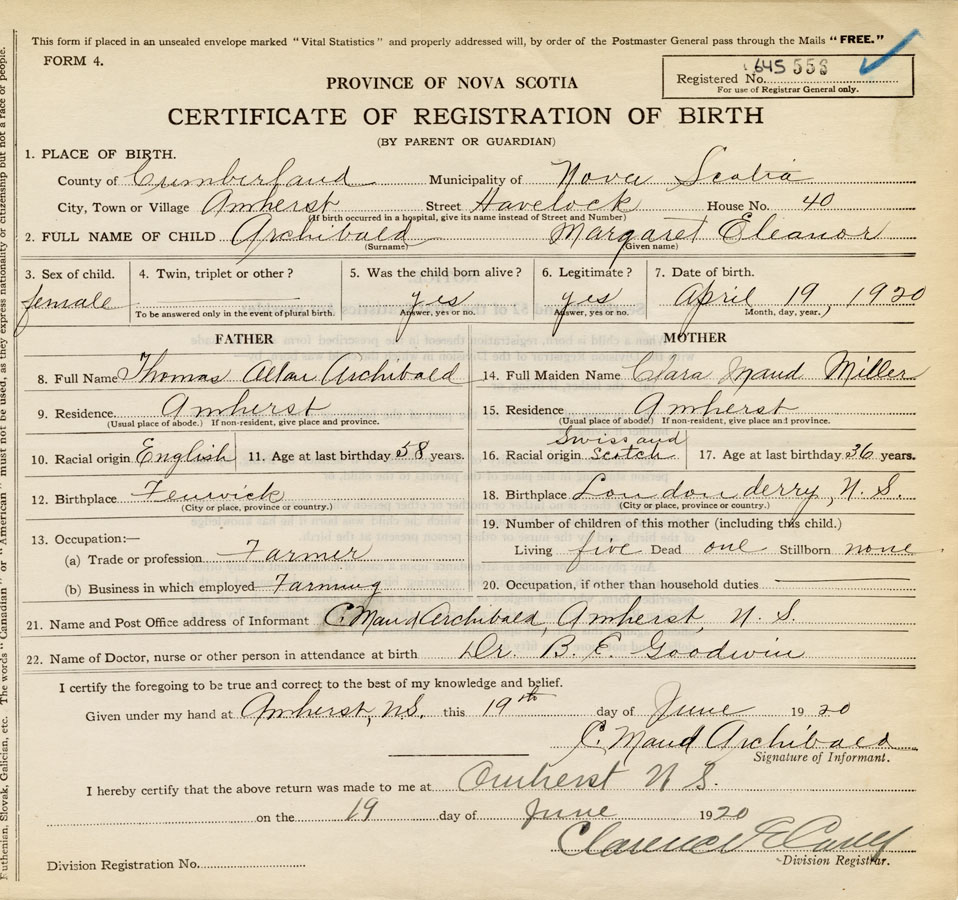 This form if placed in an unsealed envelope marked "Vital Statistics" and properly addressed will, by order of the Postmaster General pass through the Mails "FREE."
FORM 4.
645 556
Registered No.
For use of Registrar General only.
PROVINCE OF NOVA SCOTIA
CERTIFICATE OF REGISTRATION OF BIRTH
(BY PARENT OR GUARDIAN)
1. PLACE OF BIRTH.
County of Cumberland Municipality of Nova Scotia
City, Town or Village Amherst Street Havelock House No. 40
(If birth occurred in a hospital, give its name instead of Street and Number)
2. FULL NAME OF CHILD Archibald Margaret Eleanor
(Surname) (Given name)
3. Sex of child. 4. Twin, triplet or other? 5. Was the child born alive? 6. Legitimate? 7. Date of birth.
female yes yes April 19, 1920
To be answered only in the event of plural birth. Answer, yes or no. Answer, yes or no. Month, day, year.
FATHER MOTHER
8. Full Name Thomas Allan Archibald 14. Full Maiden Name Clara Maud Miller
9. Residence Amherst 15. Residence Amherst
(Usual place of abode.) If non-resident, give place and province. (Usual place of abode.) If non-resident, give place and province.
10. Racial origin English 11. Age at last birthday 58 years. 16. Racial origin Swiss and Scotch 17. Age at last birthday 36 years.
12. Birthplace Fenwick 18. Birthplace Londonderry, N. S.
(City or place, province or country.) (City or place, province or country.)
13. Occupation:— 19. Number of children of this mother (including this child.)
(a) Trade or profession Farmer Living five Dead one Stillborn none
(b) Business in which employed Farming 20. Occupation, if other than household duties
21. Name and Post Office address of Informant C. Maud Archibald, Amherst, N. S.
22. Name of Doctor, nurse or other person in attendance at birth Dr. B. E. Goodwin
I certify the foregoing to be true and correct to the best of my knowledge and belief.
Given under my hand at Amherst, N.S. this 19th day of June 1920
C. Maud Archibald
Signature of Informant.
I hereby certify that the above return was made to me at Amherst N S.
on the 19 day of June 1920
Clarence E Casey
Division Registrar.
Division Registration No.
The words "Canadian" or "American" must not be used, as they express nationality or citizenship but not a race or people.